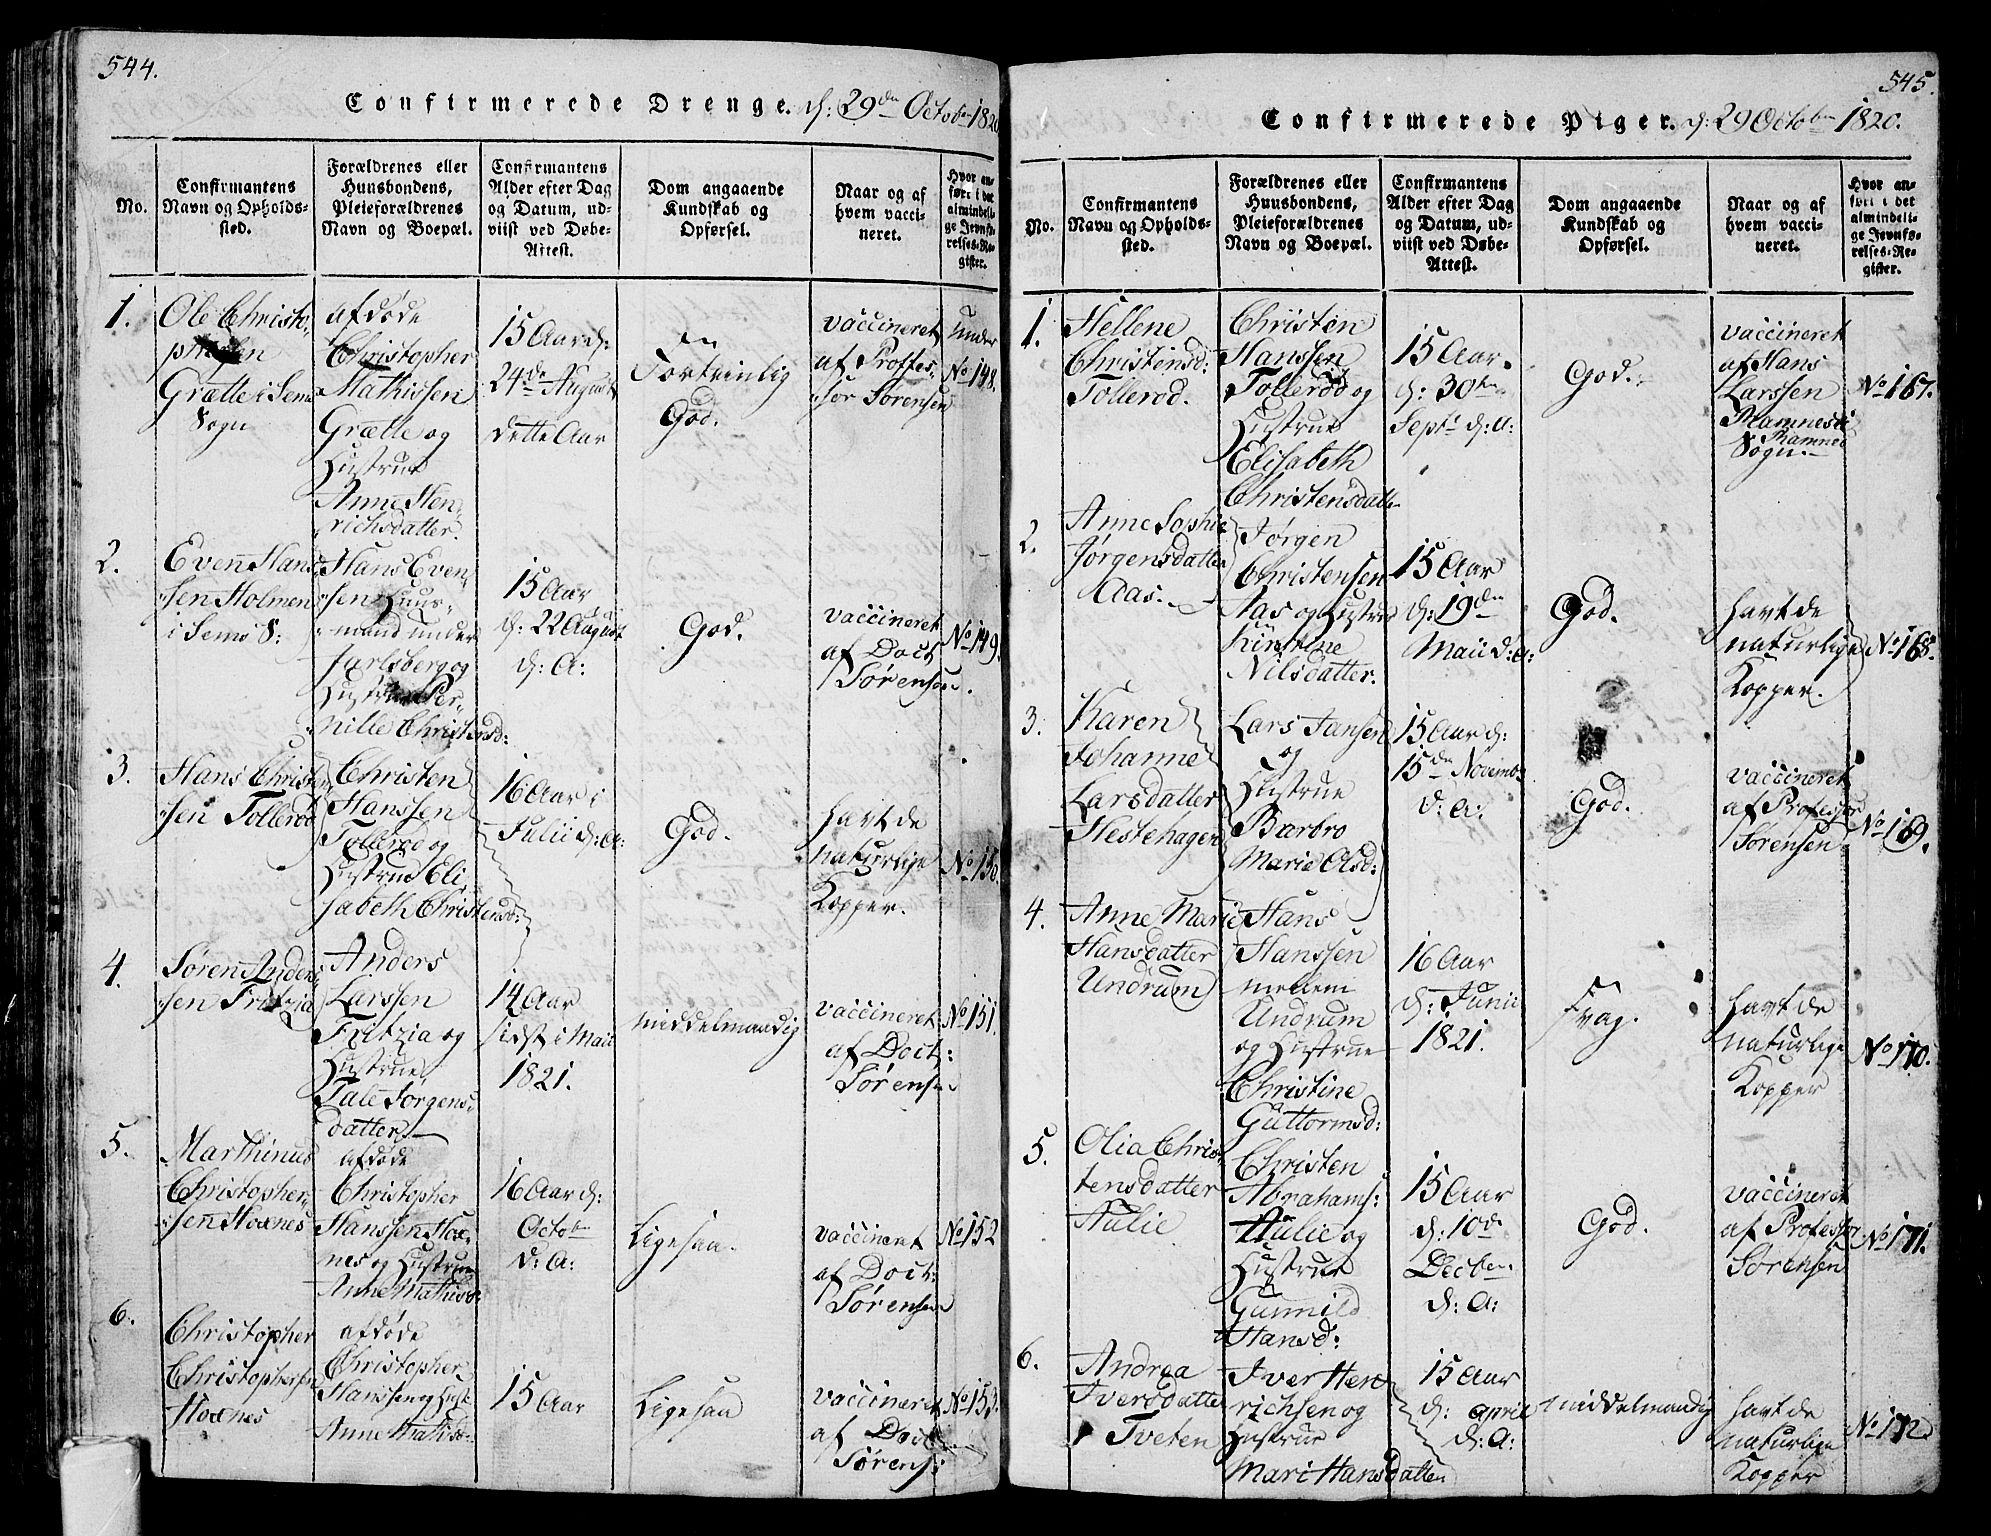 544.
Confirmerede Drenge. d: 29de Octobr 1820
No.
Confirmantens Navn og Opholds-sted.
Forældrenes eller Huusbondens, Pleieforældrenes Navn og Boepæl.
Confirmantens Alder efter Dag og Datum, ud-viist ved Døbe-Attest.
Dom angaaende Kundskab og Opførsel.
Naar og af hvem vacci-neret.
Hvor an-ført i det almindeli-ge Jevnfø-relses-Re-gister.
1.
Ole Christo-
phersen
Grætte i Sems
Sogn
afdøde
Christopher
Mathissen
Grætte og
Hustrue
Anne Hen-
richsdatter.
15 Aar d:
24de August
dette Aar
Fortrinlig
God.
vaccineret
af Proffes-
sor Sørensen
under
No 148.
2.
Even Hans-
sen Holmen
i Sems S:
Hans Even-
sen Huus-
mand under
Jarlsberg og
Hustrue Per-
nille Christensd:
15 Aar
d: 22 August
d: A:
God.
vaccineret
af Doct
Sørensen.
No 149.
3.
Hans Christen-
sen Tollerød
Christen
Hanssen
Tollerød og
Hustrue Eli-
sabeth Christensd:
16 Aar i
Julii d: A:
God.
havt de
naturlige
Kopper.
No 150.
4.
Søren Anders-
sen Fritzia
Anders
Larssen
Fritzia og
Hustrue
Tale Jorgens-
datter
14 Aar
sidst i Maii
1821.
middelmaadig
vaccineret
af Doct:
Sørensen
No 151.
5.
Marthinus
Christopher-
sen Hoxnes
afdøde
Christopher
Hanssen Hox-
nes og Hustrue
Anne Mathisd:
16 Aar d:
Octobr
d: A:
Ligesaa.
vaccineret
af Doct:
Sørensen
No 152
6.
Christopher
Christophersen
Hoxnes
afdøde
Christopher
Hanssen og Hustr
Anne Mathisd:
15 Aar
Ligesaa
vaccineret
af Doct
Sørens:
No 153.
545.
Confirmerede Piger. d: 29 Octobr 1820.
No.
Confirmantens Navn og Opholds-sted.
Forældrenes eller Huusbondens, Pleieforældrenes Navn og Boepæl.
Confirmantens Alder efter Dag og Datum, ud-viist ved Døbe-Attest.
Dom angaaende Kundskab og Opførsel.
Naar og af hvem vacci-neret.
Hvor an-ført i det almindeli-ge Jevnfø-relses-Re-gister.
1.
Hellene
Christensd:
Tollerod.
Christen
Hanssen
Tollerød og
Hustrue
Elisabeth
Christensdatter
15 Aar.
d: 30te
Septr d: a:
God.
vaccineret
af Hans
Larssen
Ramnes i
Ramnes
Sogn.
No 167.
2.
Anne Sophie
Jørgensdatter
Aas.
Jørgen
Christensen
Aas og Hustrue
Kirstine
Nilsdatter.
15 Aar
d: 19de
Maii d: a:
God.
havt de
naturlige
Kopper.
No 168.
3.
Karen
Johanne
Larsdatter
Hestehagen
Lars Jansen
og
Hustrue
Barbro
Marie Olsd:
15 Aar d:
15de Novembr
d: a:
God.
vaccineret
af Professor
Sørensen
No 169.
4.
Anne Marie
Hansdatter
Undrum
Hans
Hanssen
mellem
Undrum
og Hustrue
Christine
Guttormsd:
16 Aar
d: Junii
1821.
Svag.
havt de
naturlige
Kopper
No 170.
5.
Olia Chris-
tensdatter
Aulie
Christen
Abrahams:
Aulie og
Hustrue
Gunnild
Hansd:
15 Aar
d: 10de
Decbr.
d: A:
God.
vaccineret
af Professor
Sørensen
No 171.
6.
Andrea
Iversdatter
Tveten
Iver Hen-
richsen og
Hustrue
Mari Hansdatter
15 Aar
d: april
d: A:
middelmaadig
havt de
naturlige
Kopper
No 172